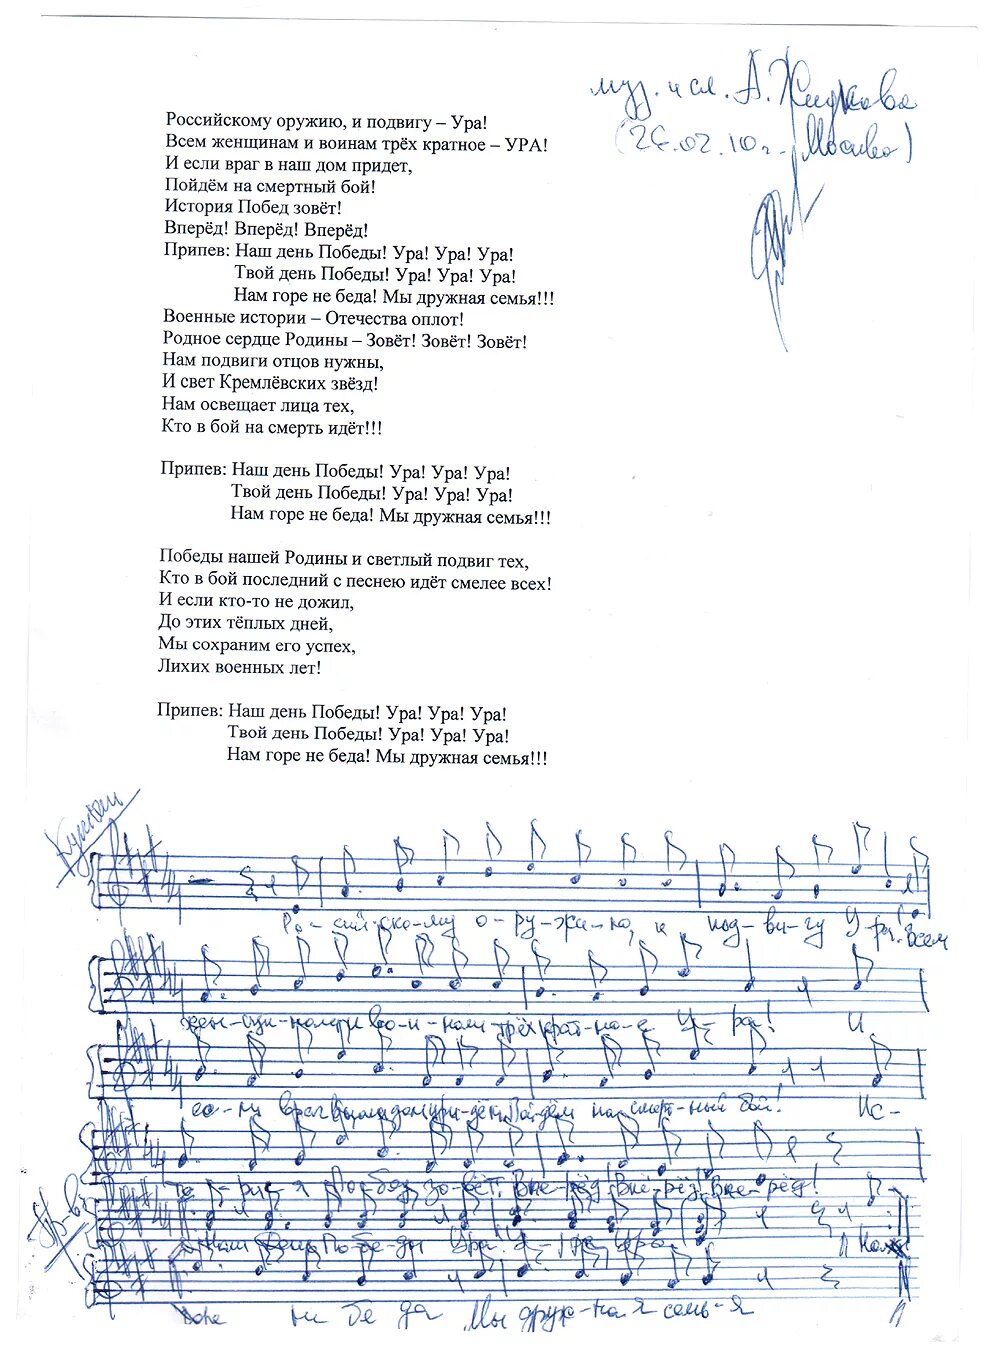 муз. и сл. А. Жидкова
(26.02.10 г. Москва)
Российскому оружию, и подвигу – Ура!
Всем женщинам и воинам трёх кратное – УРА!
И если враг в наш дом придет,
Пойдём на смертный бой!
История Побед зовёт!
Вперёд! Вперёд! Вперёд!
Припев: Наш день Победы! Ура! Ура! Ура!
Твой день Победы! Ура! Ура! Ура!
Нам горе не беда! Мы дружная семья!!!
Военные истории – Отечества оплот!
Родное сердце Родины – Зовёт! Зовёт! Зовёт!
Нам подвиги отцов нужны,
И свет Кремлёвских звёзд!
Нам освещает лица тех,
Кто в бой на смерть идёт!!!
Припев: Наш день Победы! Ура! Ура! Ура!
Твой день Победы! Ура! Ура! Ура!
Нам горе не беда! Мы дружная семья!!!
Победы нашей Родины и светлый подвиг тех,
Кто в бой последний с песнею идёт смелее всех!
И если кто-то не дожил,
До этих тёплых дней,
Мы сохраним его успех,
Лихих военных лет!
Припев: Наш день Победы! Ура! Ура! Ура!
Твой день Победы! Ура! Ура! Ура!
Нам горе не беда! Мы дружная семья!!!
Куплет
4/4
о-ру-жи-ю, и под-ви-гу У-ра! Всем
4/4
трёх крат-но-е У-ра! И
4/4
ес-ли враг в наш дом при-дёт, Пой-дём на смерт-ный бой! Ис-
4/4
то-ри-я По-бед зо-вёт! Впе-рёд! Впе-рёд! Впе-рёд!
Пр-в:
Наш День По-бе-ды Ура! У-ра Ура
Нам
горе не бе да Мы друж-на я семь-я